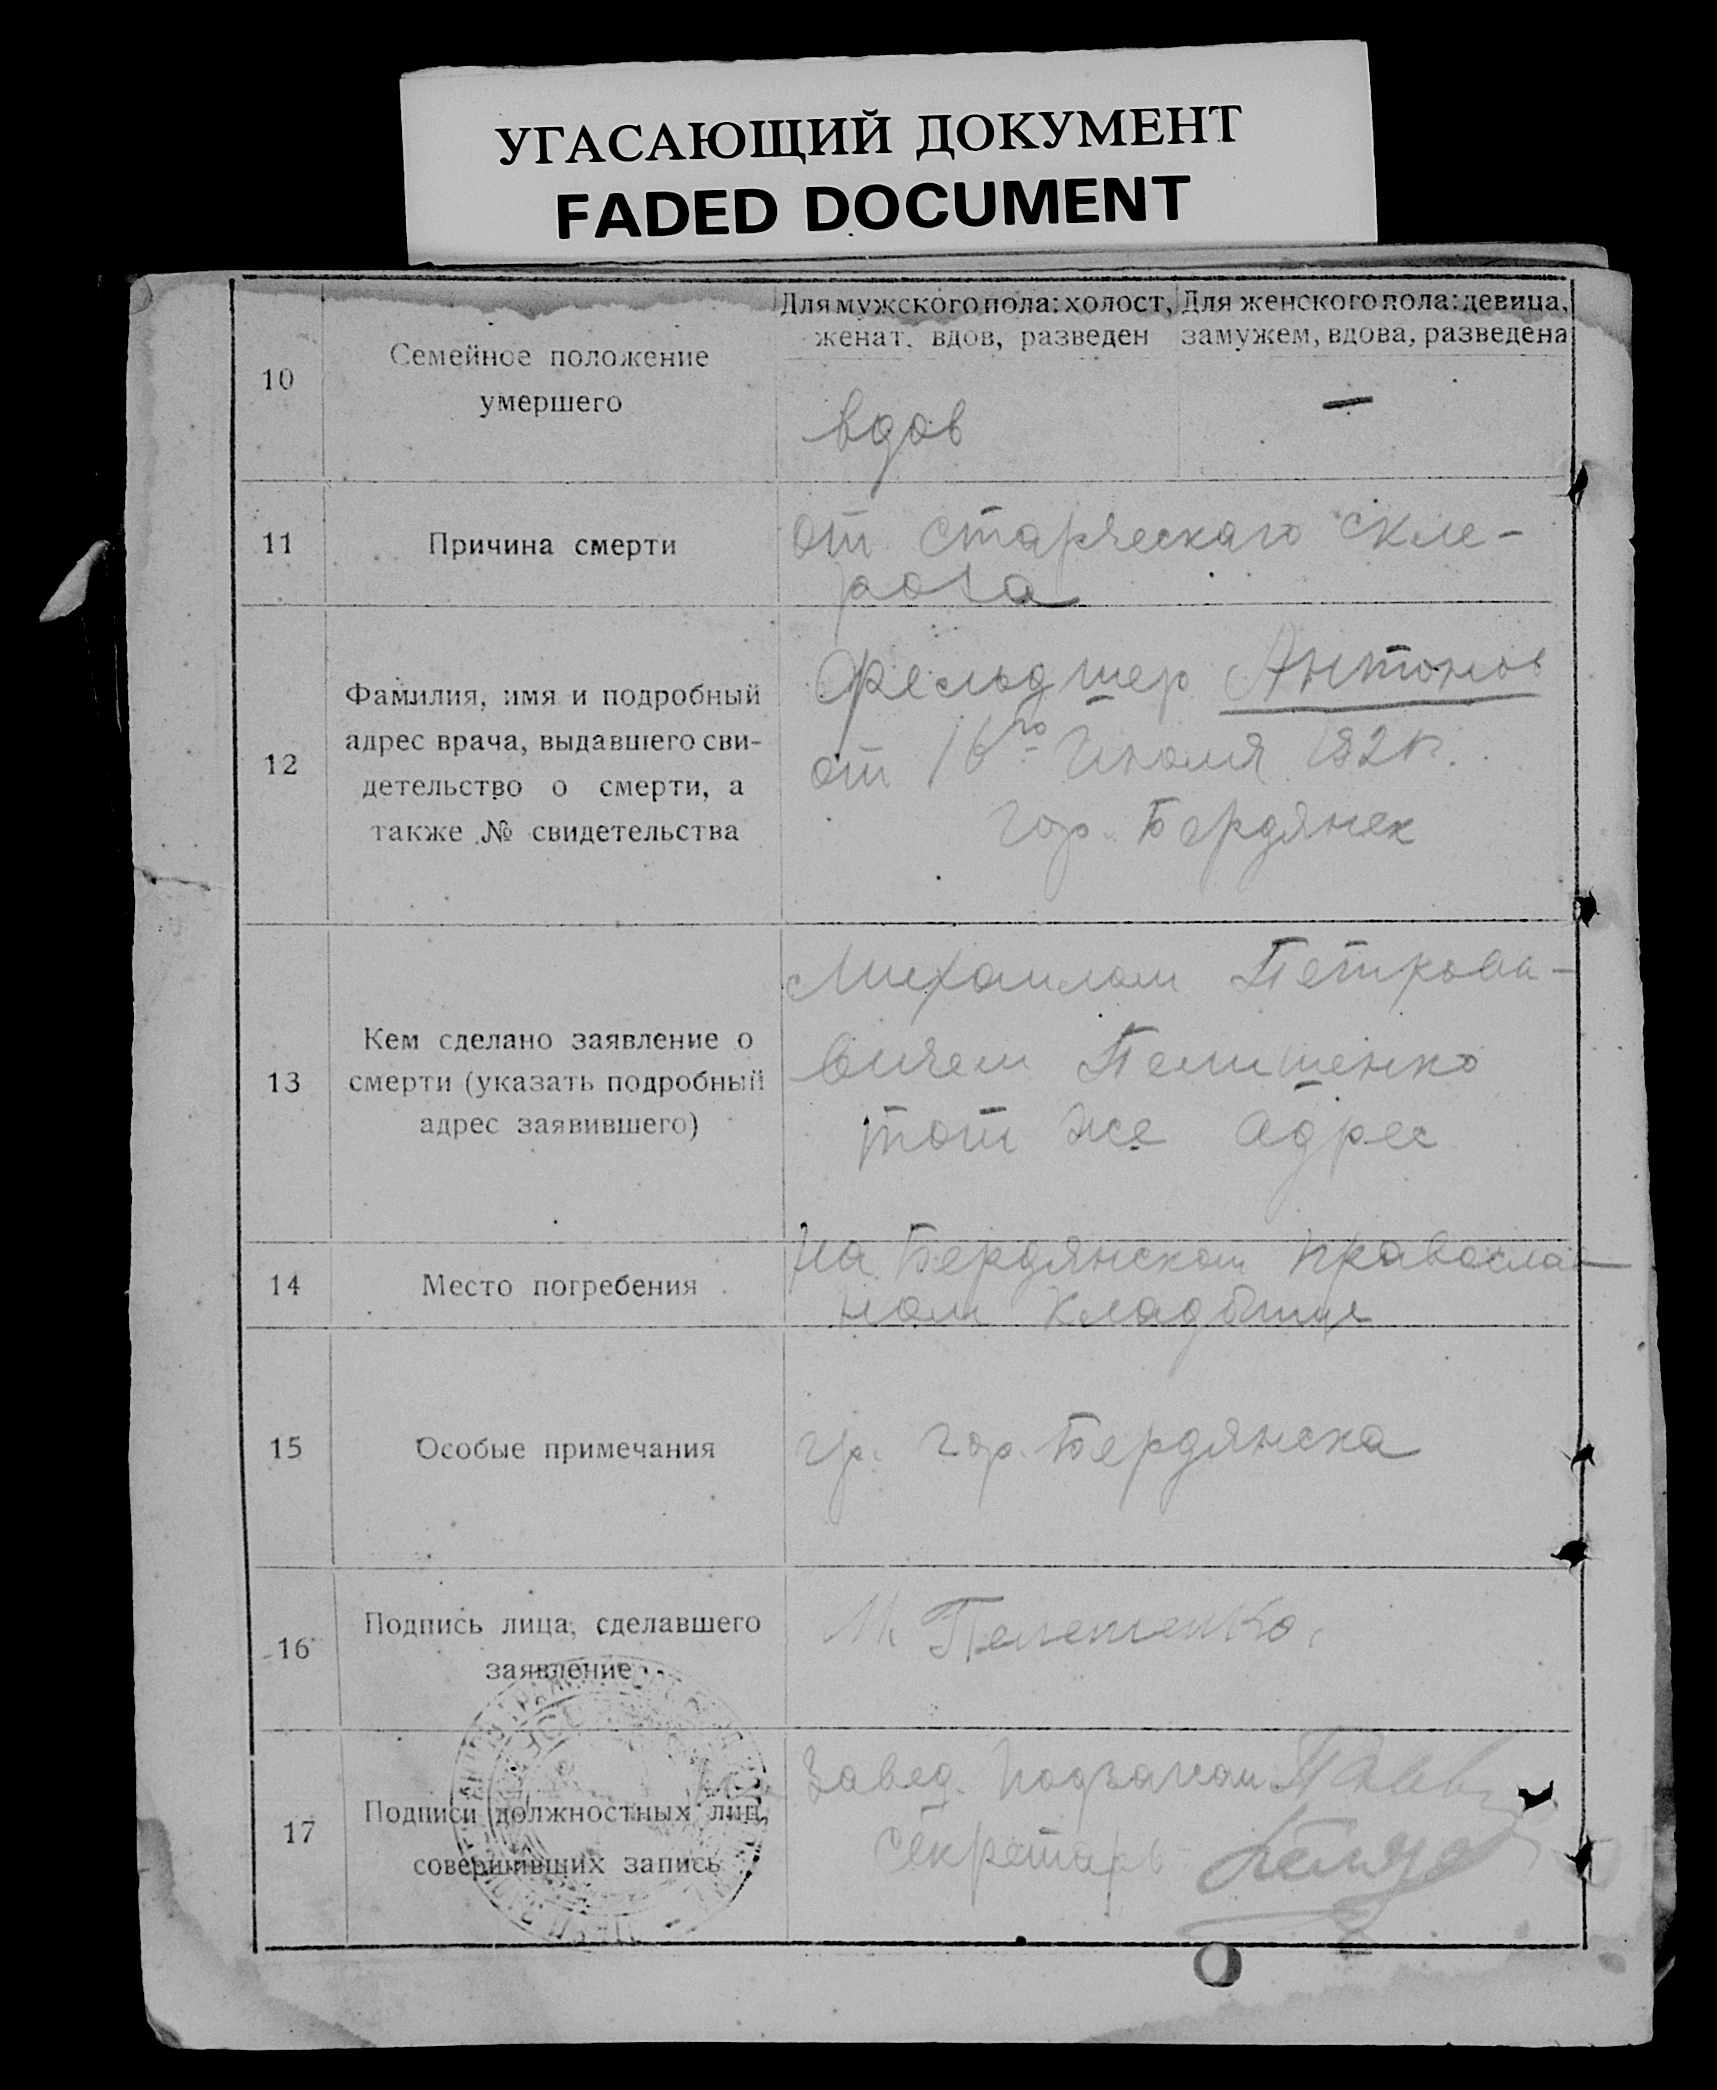 УГАСАЮЩИЙ ДОКУМЕНТ
FADED DOCUMENT
Для мужского пола: холост,
женат, вдов, разведен
Для женского пола: девица,
замужем, вдова, разведена
10
Семейное положение
умершего
вдов
—
11
Причина смерти
от старческаго скле-
роза
12
Фамилия, имя и подробный
адрес врача, выдавшего сви-
детельство о смерти, а
также № свидетельства
Фельдшер Антонов
от 16го Июля
гор. Бердянск
13
Кем сделано заявление о
смерти (указать подробный
адрес заявившего)
Михаилом Петрови-
вичем
тот же адрес
14
Место погребения
На Бердянском православ-
ном кладбище
15
Особые примечания
гр. гор. Бердянска
16
Подпись лица, сделавшего
заявление
М.
17
Подписи должностных лиц,
совершивших запись
Завед. Подзагсом
Секретарь